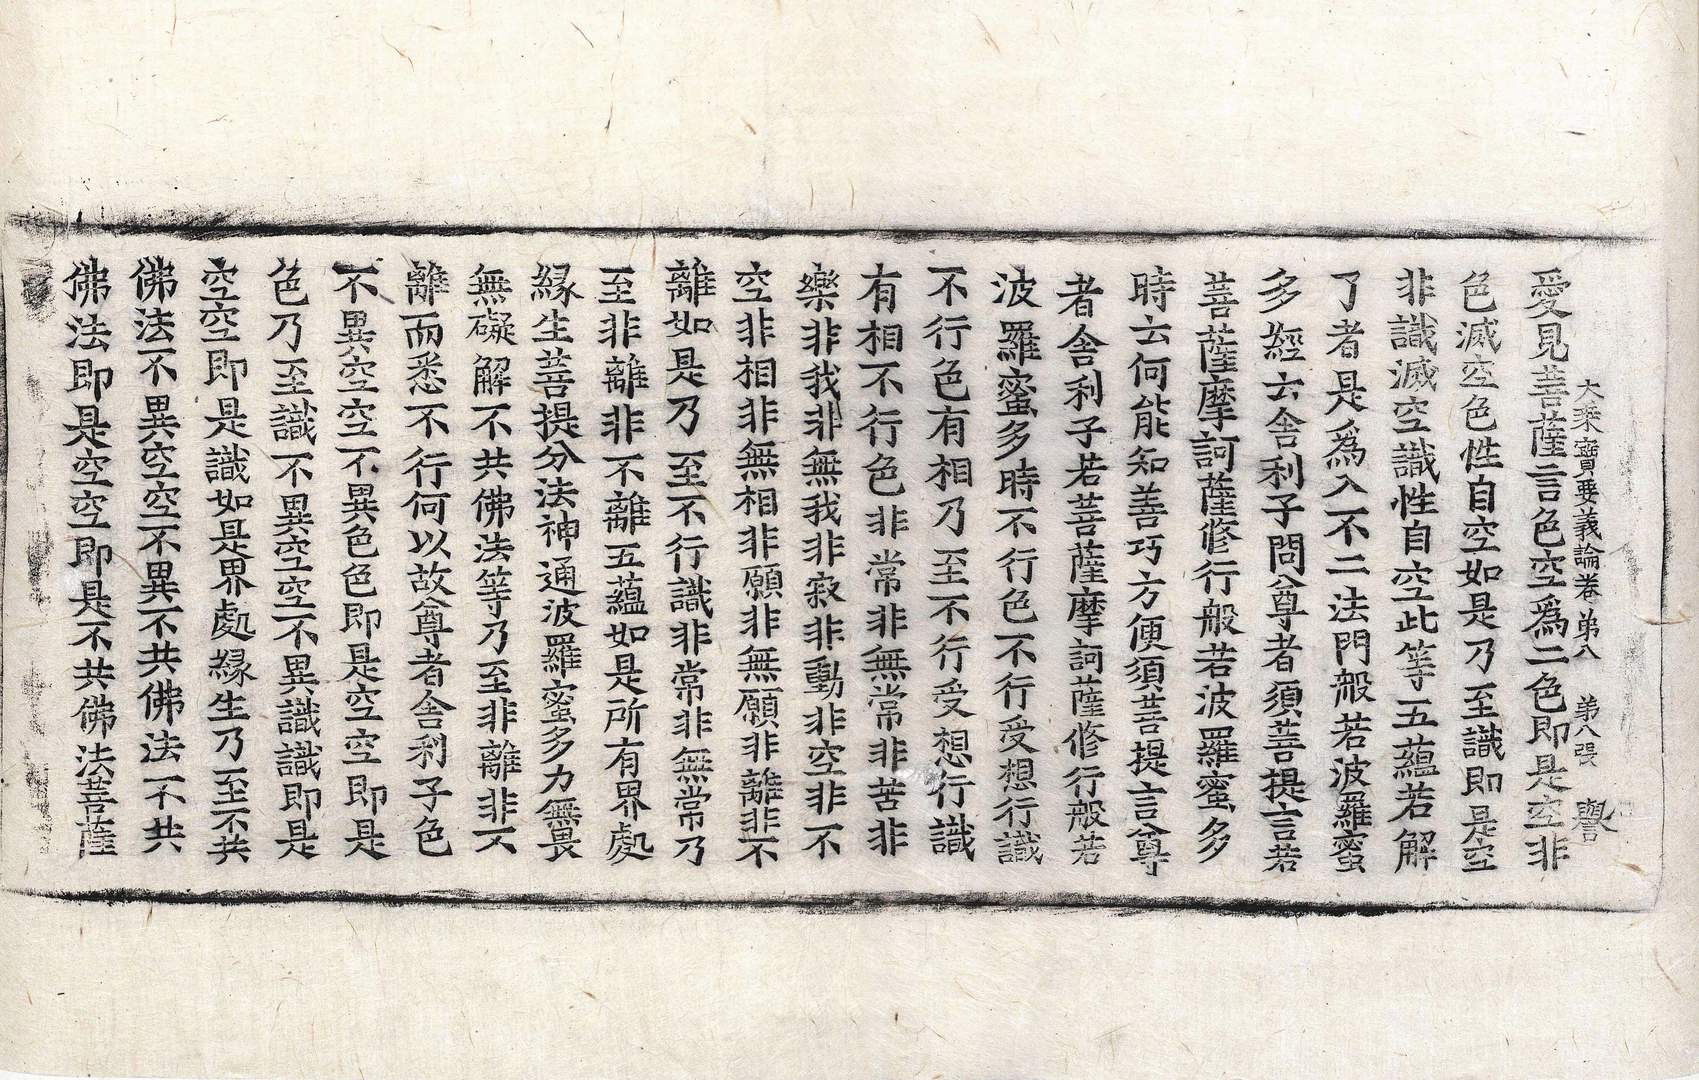 大乘寶要義論卷第八 第八張 譽
愛見菩薩言色空爲二色即是空非
色滅空色性自空如是乃至識即是空
非識滅空識性自空此等五蘊若解
了者是爲入不二法門般若波羅蜜
多經云舍利子問尊者須菩提言若
菩薩摩訶薩修行般若波羅蜜多
時云何能知善巧方便須菩提言尊
者舍利子若菩薩摩訶薩修行般若
波羅蜜多時不行色不行受想行識
不行色有相乃至不行受想行識
有相不行色非常非無常非苦非
樂非我非無我非寂非動非空非不
空非相非無相非願非無願非離非不
離如是乃至不行識非常非無常乃
至非離非不離五蘊如是所有界處
緣生菩提分法神通波羅蜜多力無畏
無礙解不共佛法等乃至非離非不
離而悉不行何以故尊者舍利子色
不異空空不異色色即是空空即是
色乃至識不異空空不異識識即是
空空即是識如是界處緣生乃至不共
佛法不異空空不異不共佛法不共
佛法即是空空即是不共佛法菩薩